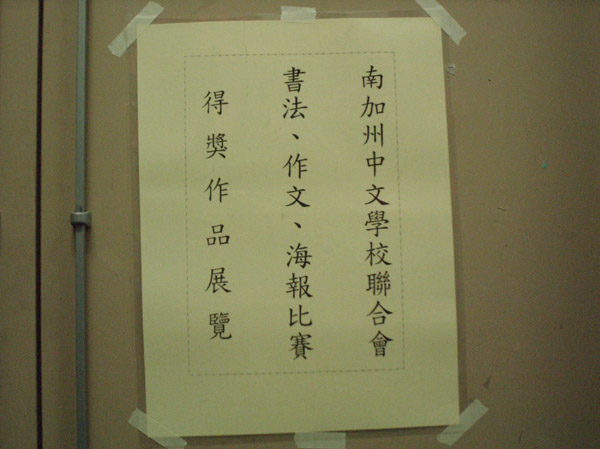 南加州中文學校聯合會
書法、作文、海報比賽
得獎作品展覽